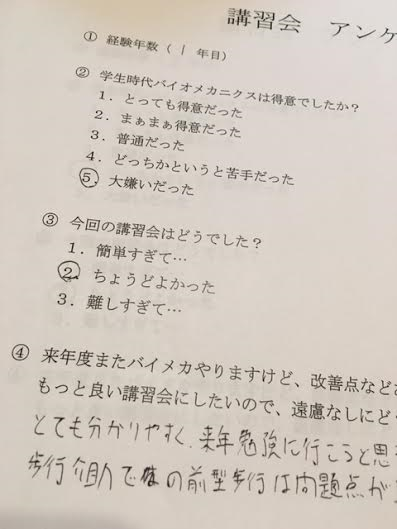 講習会 アンケ
① 経験年数（ 1 年目）
② 学生時代バイオメカニクスは得意でしたか？
1．とっても得意だった
2．まぁまぁ得意だった
3．普通だった
4．どっちかというと苦手だった
5．大嫌いだった
③ 今回の講習会はどうでした？
1．簡単すぎて…
2．ちょうどよかった
3．難しすぎて…
④ 来年度またバイメカやりますけど、改善点など
もっと良い講習会にしたいので、遠慮なしにど
とても分かりやすく、来年勉強に行こうと思
歩行介助での前型歩行は問題点が